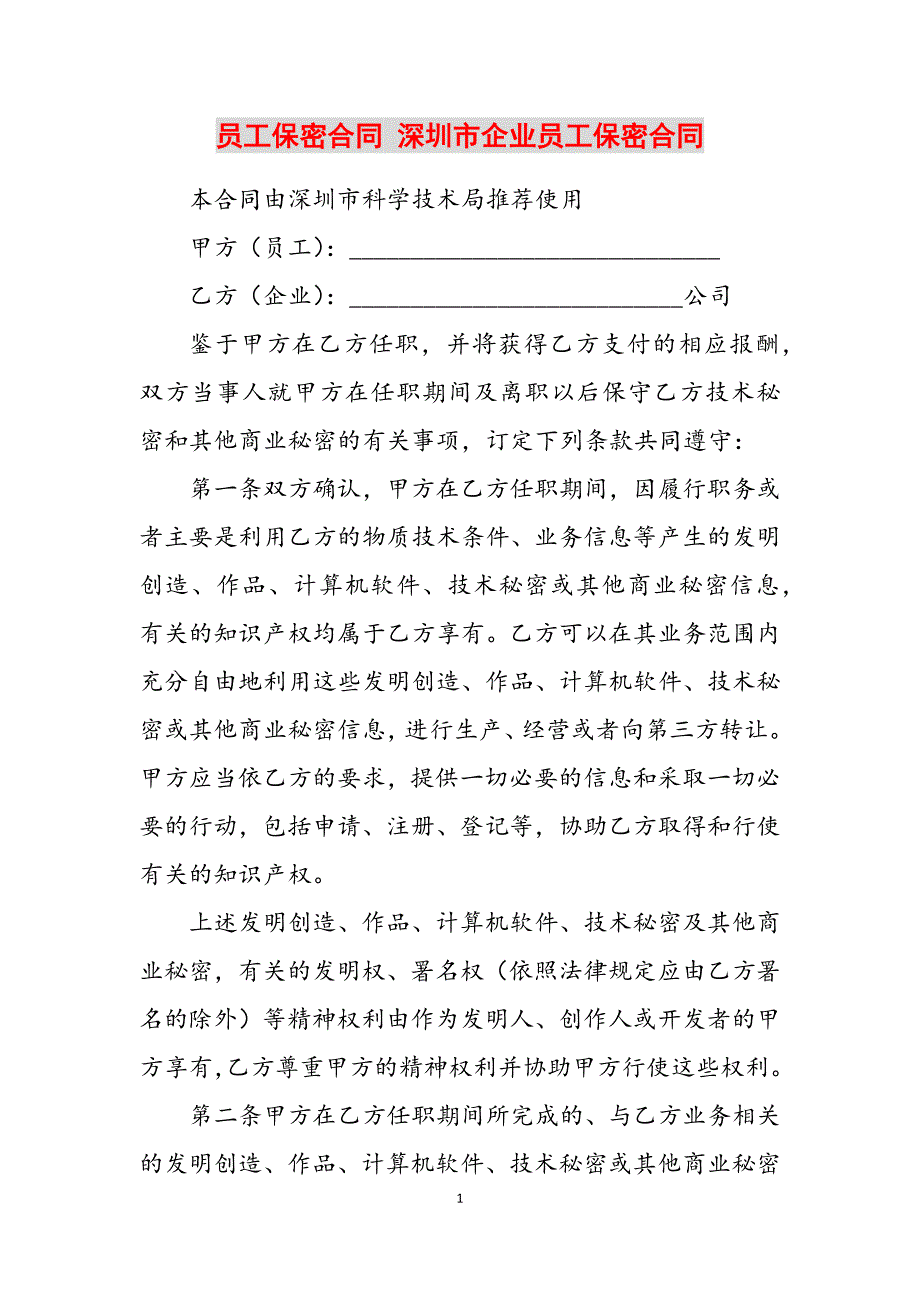 员工保密合同 深圳市企业员工保密合同
本合同由深圳市科学技术局推荐使用
甲方（员工）：______________________________
乙方（企业）：___________________________公司
鉴于甲方在乙方任职，并将获得乙方支付的相应报酬，
双方当事人就甲方在任职期间及离职以后保守乙方技术秘
密和其他商业秘密的有关事项，订定下列条款共同遵守：
第一条双方确认，甲方在乙方任职期间，因履行职务或
者主要是利用乙方的物质技术条件、业务信息等产生的发明
创造、作品、计算机软件、技术秘密或其他商业秘密信息，
有关的知识产权均属于乙方享有。乙方可以在其业务范围内
充分自由地利用这些发明创造、作品、计算机软件、技术秘
密或其他商业秘密信息，进行生产、经营或者向第三方转让。
甲方应当依乙方的要求，提供一切必要的信息和采取一切必
要的行动，包括申请、注册、登记等，协助乙方取得和行使
有关的知识产权。
上述发明创造、作品、计算机软件、技术秘密及其他商
业秘密，有关的发明权、署名权（依照法律规定应由乙方署
名的除外）等精神权利由作为发明人、创作人或开发者的甲
方享有，乙方尊重甲方的精神权利并协助甲方行使这些权利。
第二条甲方在乙方任职期间所完成的、与乙方业务相关
的发明创造、作品、计算机软件、技术秘密或其他商业秘密
1